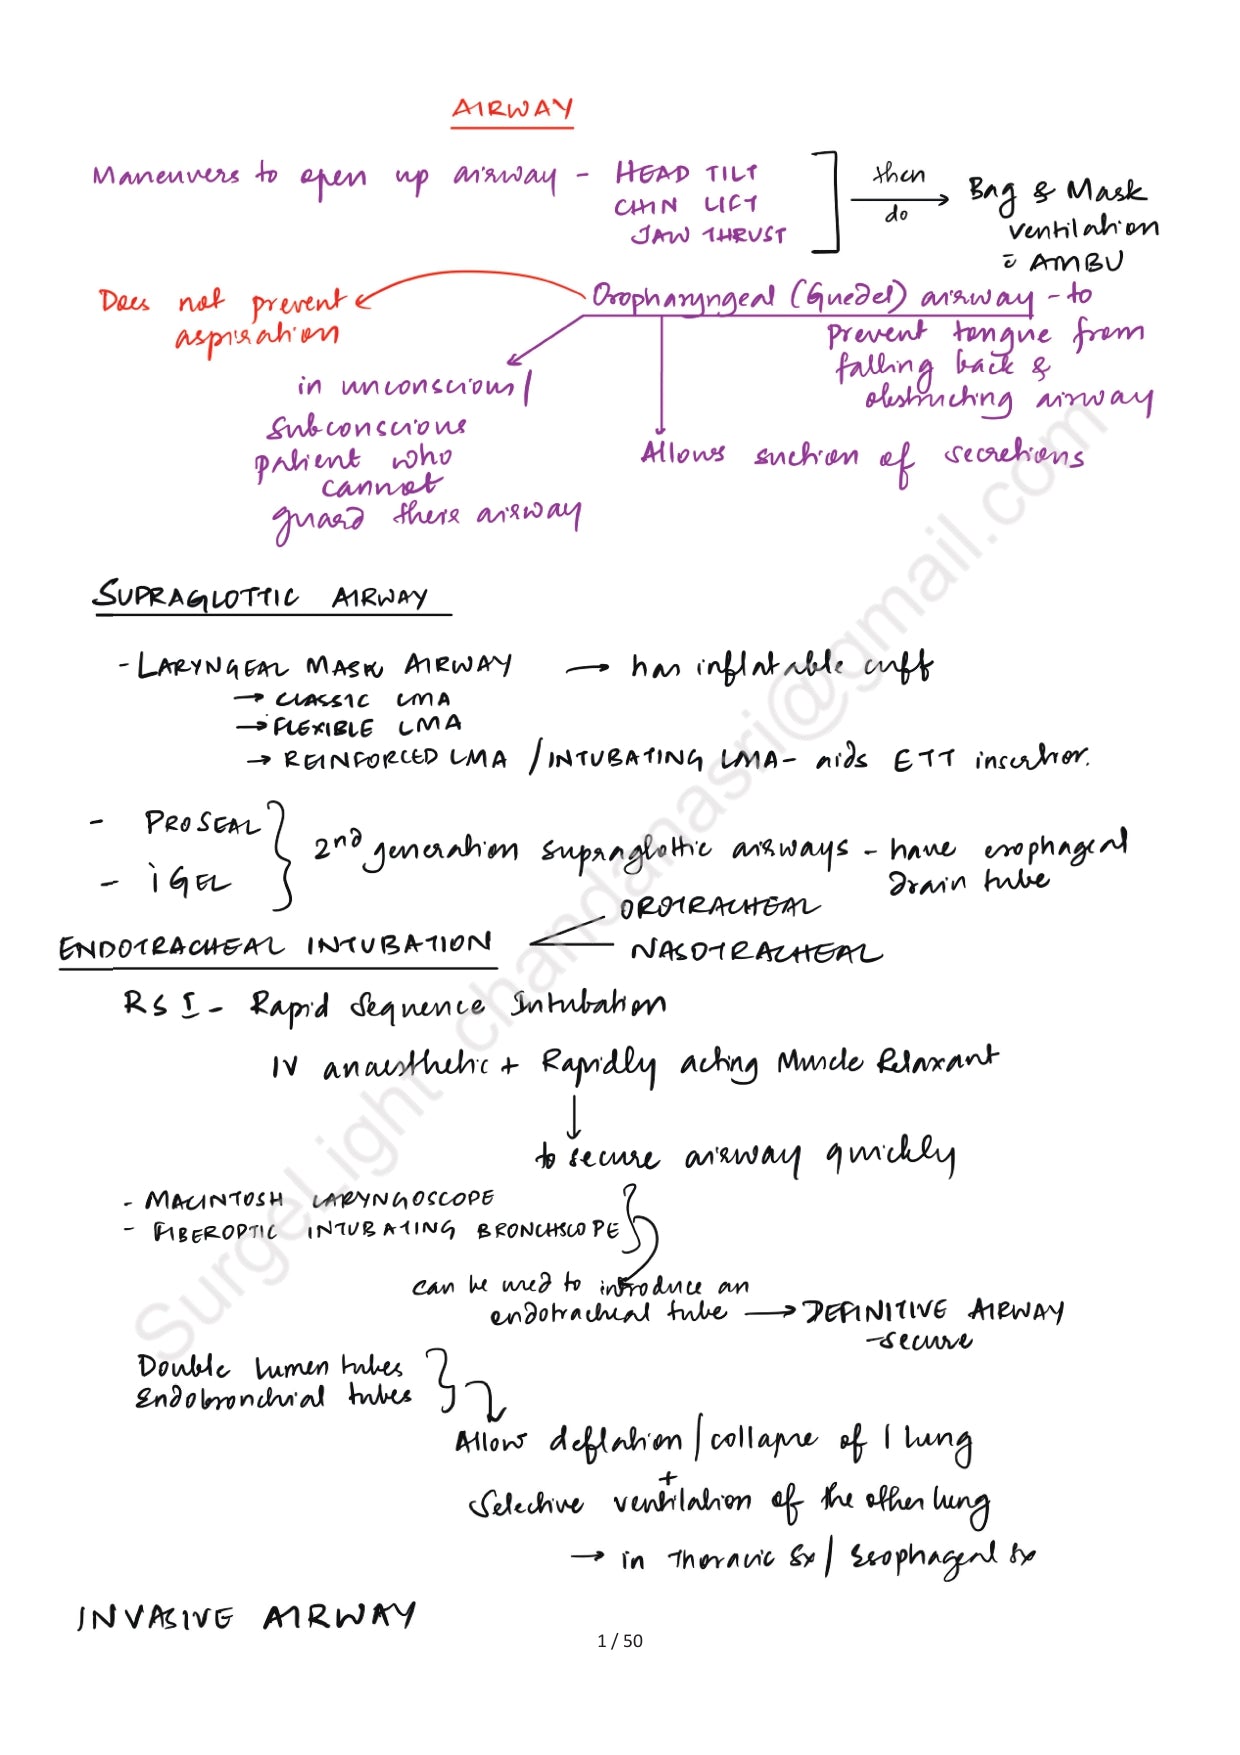 AIRWAY
Maneuvers to open up airway - HEAD TILT
CHIN LIFT
JAW THRUST
then
do
Bag & Mask
ventilation
c̄ AMBU
Oropharyngeal (Guedel) airway - to
prevent tongue from
falling back &
obstructing airway
Does not prevent
aspiration
in unconscious/
subconscious
patient who
cannot
guard their airway
Allows suction of secretions
SUPRAGLOTTIC AIRWAY
- LARYNGEAL MASK AIRWAY → has inflatable cuff
→ CLASSIC LMA
→ FLEXIBLE LMA
→ REINFORCED LMA / INTUBATING LMA - aids ETT insertion.
- PROSEAL
- iGEL
2nd generation supraglottic airways - have esophageal
drain tube
ENDOTRACHEAL INTUBATION
OROTRACHEAL
NASOTRACHEAL
RSI - Rapid Sequence Intubation
IV anaesthetic + Rapidly acting Muscle Relaxant
↓
to secure airway quickly
- MACINTOSH LARYNGOSCOPE
- FIBEROPTIC INTUBATING BRONCHSCOPE
can be used to introduce an
endotracheal tube → DEFINITIVE AIRWAY
-secure
Double lumen tubes
Endobronchial tubes
Allow deflation/collapse of 1 lung
+
Selective ventilation of the other lung
→ in Thoracic Sx / Esophageal Sx
INVASIVE AIRWAY
1 / 50
SurgeLight chandanasri@gmail.com